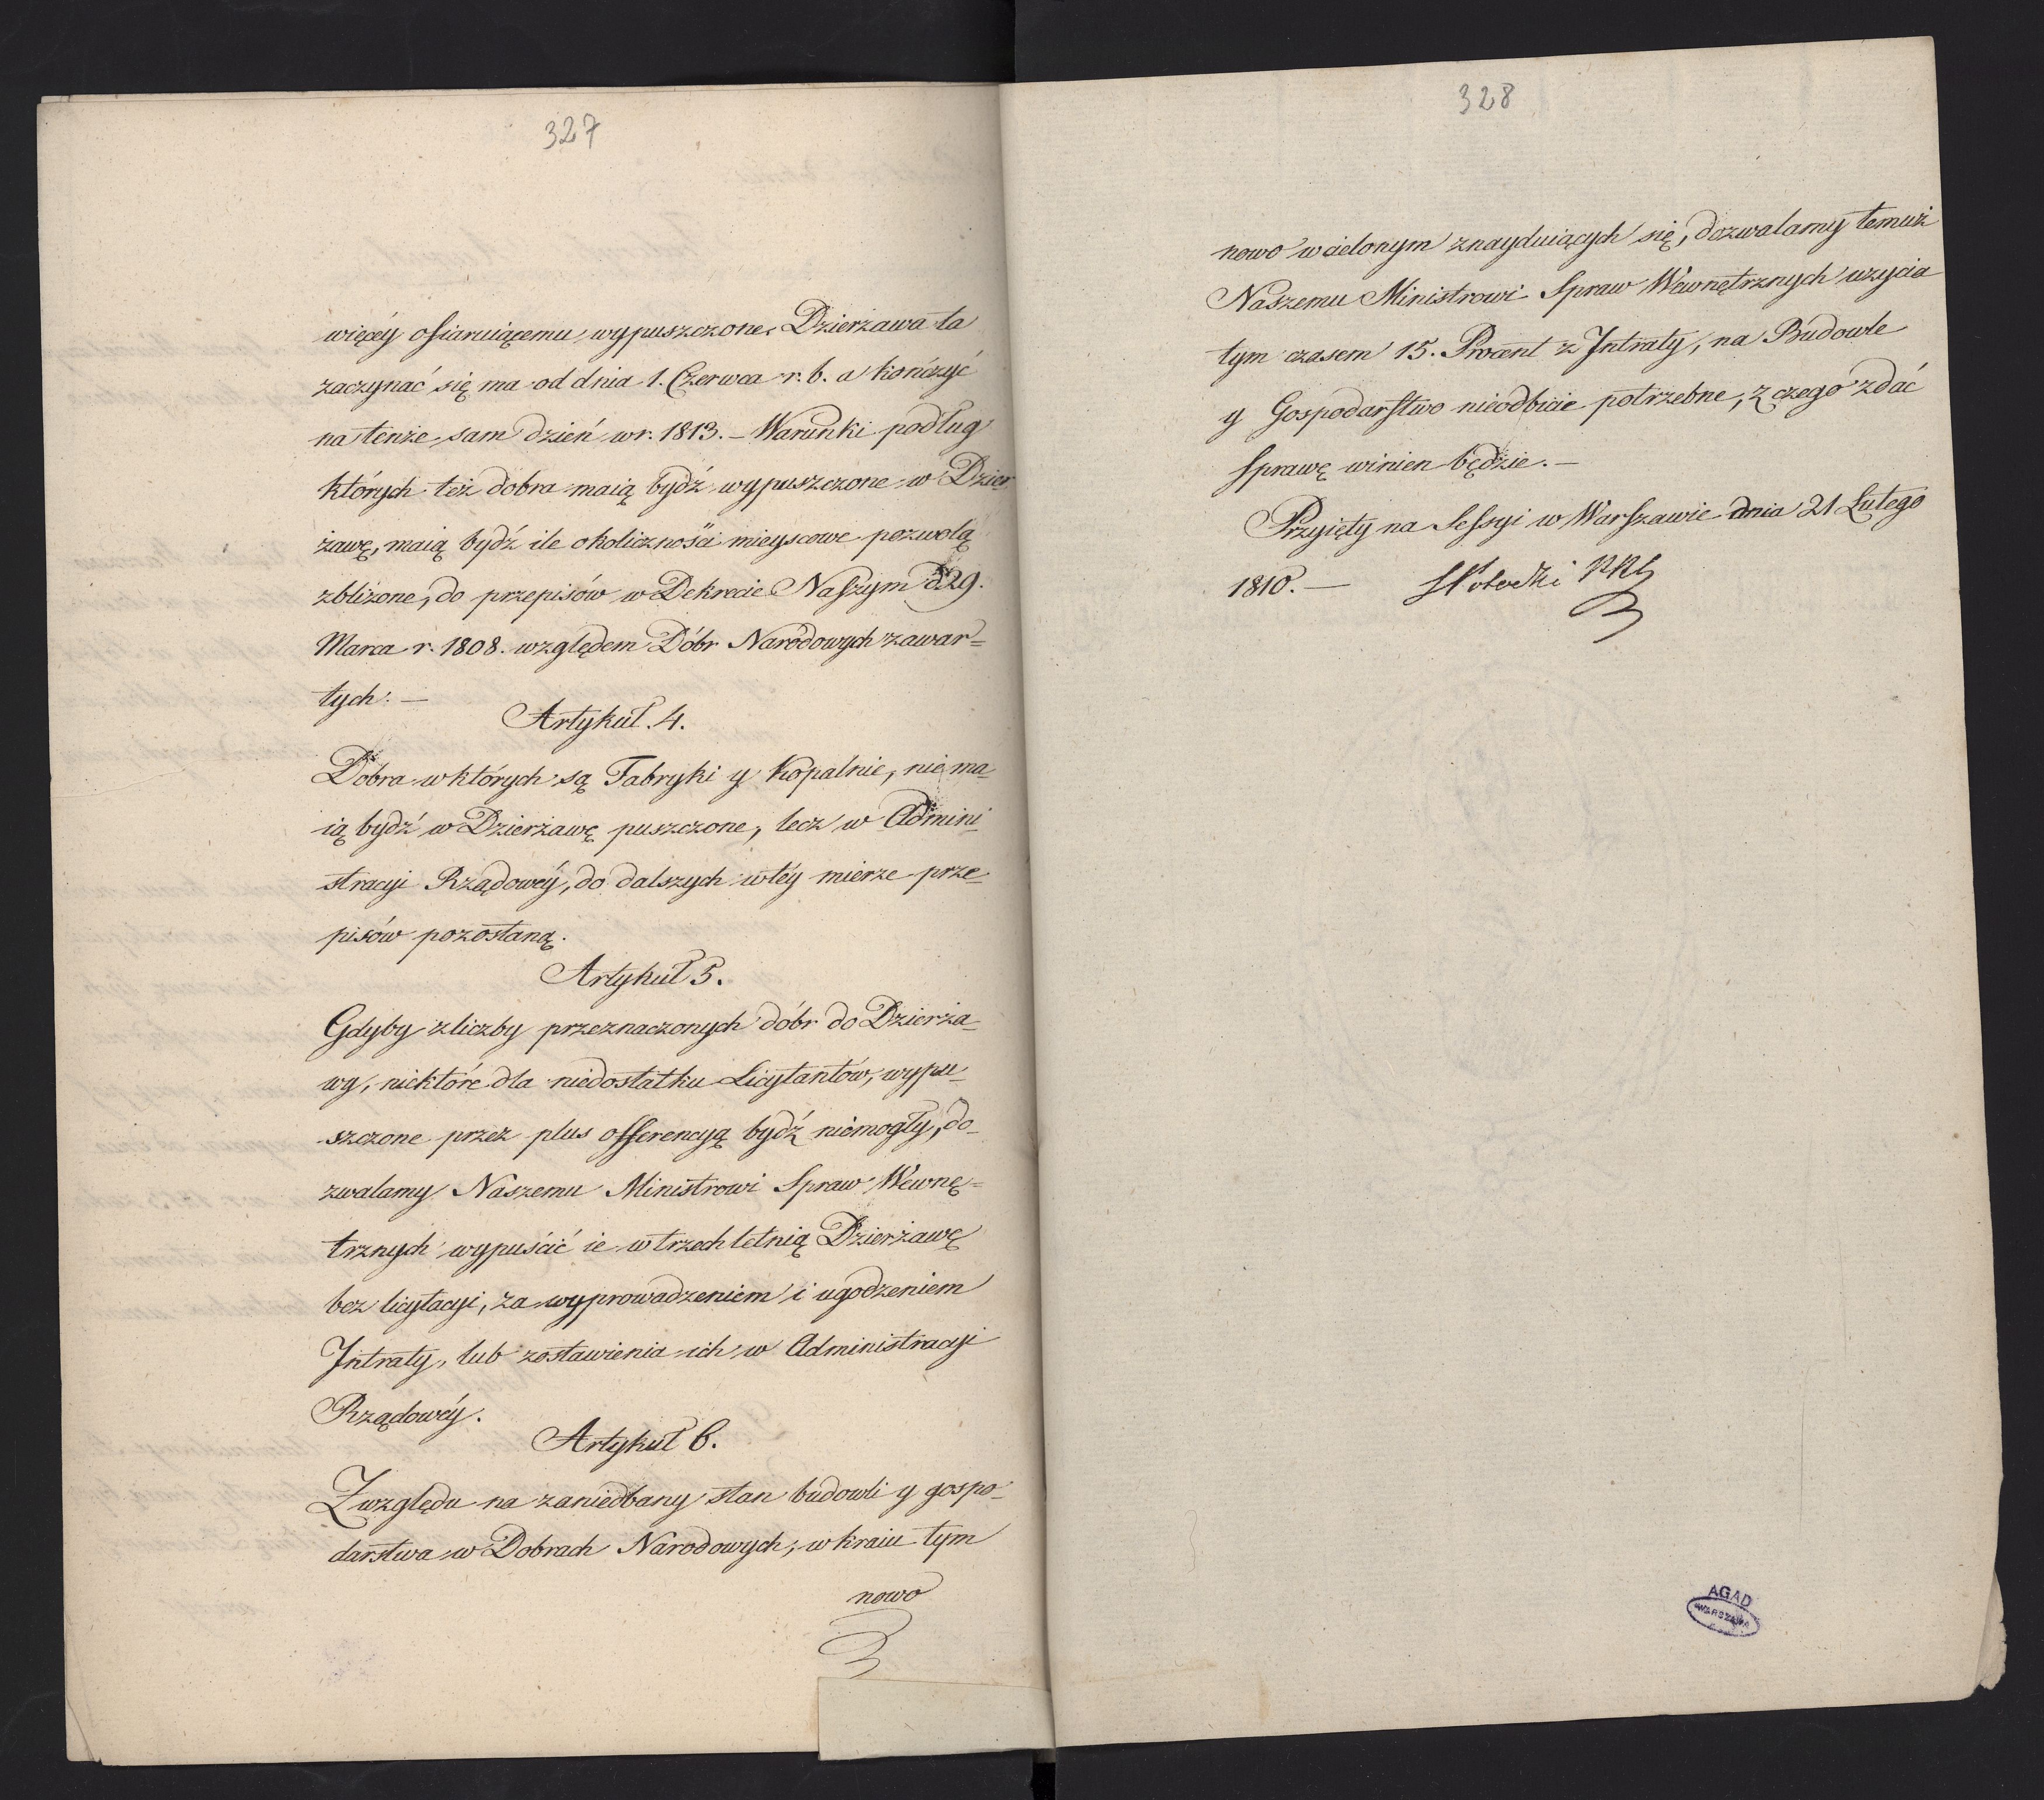 327
więcéy ofiaruiącemu wypuszczone. Dzierżawa ta
zaczynać się ma od dnia 1. Czerwca r. b. a kończyć
na tenże sam dzień w r. 1813. – Warunki podług
których też dobra maią bydź wypuszczone w Dzier
żawę, maią bydź ile okoliczności mieyscowe pozwolą
zbliżone, do przepisów w Dekrecie Naszym d 29.
Marca r. 1808. względem Dóbr Narodowych zawar=
tych. —
Artykuł. 4.
Dobra w których są Fabryki y Kopalnie, nie ma-
ią bydź w Dzierżawę puszczone, lecz w Admini-
stracyi Rządowéy, do dalszych w téy mierze prze-
pisów pozostaną.
Artykuł 5.
Gdyby z liczby przeznaczonych dóbr do Dzierża-
wy, niektóre dla niedostatku Licytantów, wypu-
szczone przez plus offerencyą bydź niemogły, do-
zwalamy Naszemu Ministrowi Spraw Wewnę=
trznych wypuścić ie w trzech letnią Dzierżawę
bez licytacyi, za wyprowadzeniem i ugodzeniem
Intraty, lub zostawienia ich w Administracyi
Rządowéy.
Artykuł 6.
Z względu na zaniedbany stan budowli y gospo-
darstwa w Dobrach Narodowych, w kraiu tym
nowo
328
nowo wcielonym znayduiących się, dozwalamy temuż
Naszemu Ministrowi Spraw Wewnętrznych uzycia
tym czasem 15. Procent z Intraty, na Budowle
y Gospodarstwo nieodbicie potrzebne, z czego zdać
sprawę winien będzie. —
Przyięty na Sessyi w Warszawie dnia 21 Lutego
1810. —
AGAD
WARSZAWA